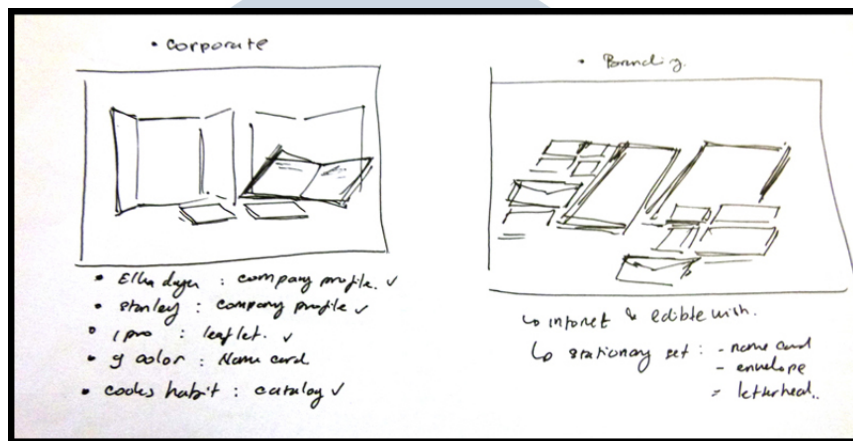 • Corporate
• Elka dayu : company profile. ✓
• Stanley : company profile ✓
• 1 pro : leaflet. ✓
• g color : Name card
• cooks habit : catalog ✓
• Branding.
↳ intonet & edible wish.
↳ stationary set : - name card
- envelope
- letterhead..